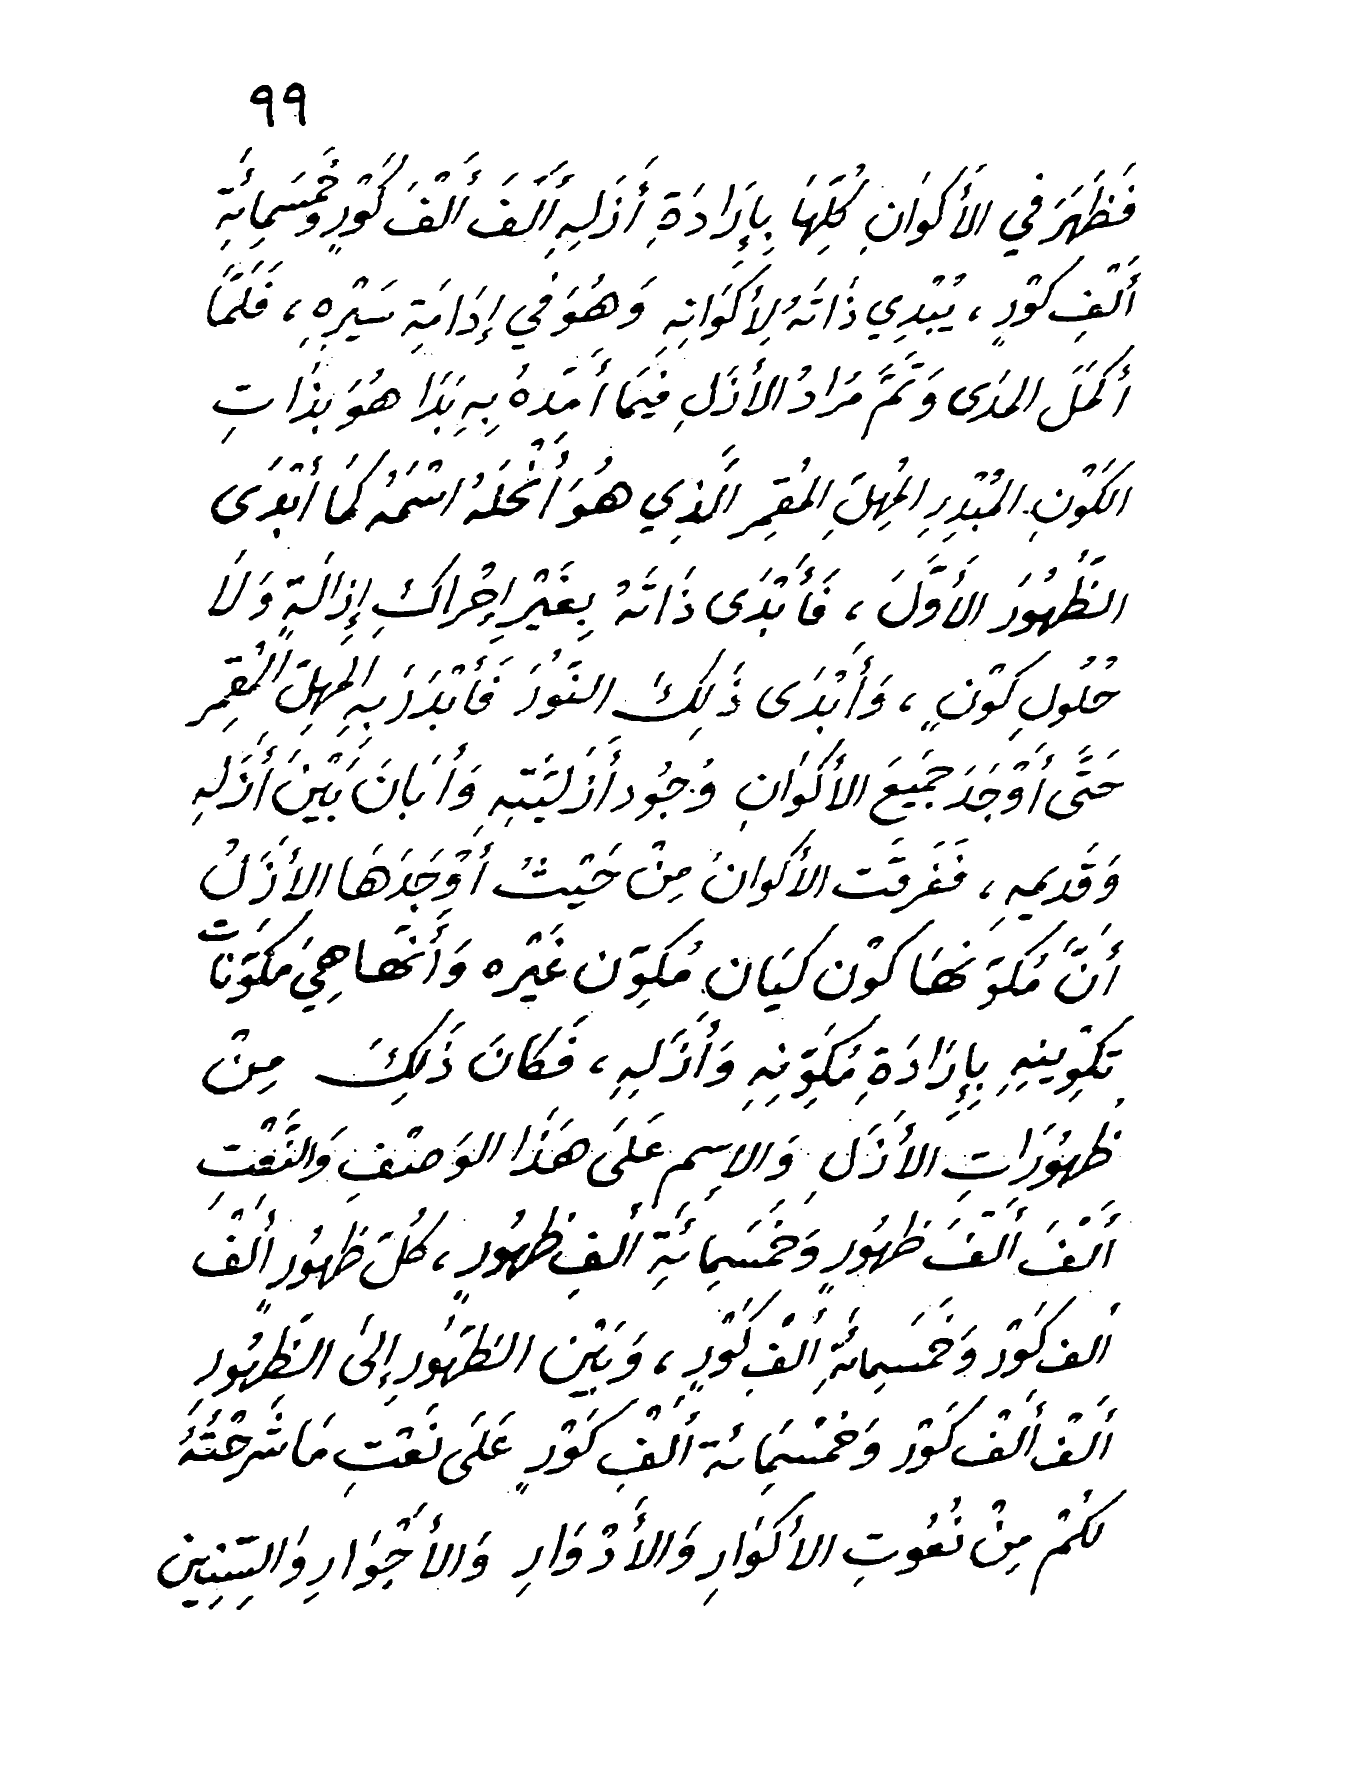 ٩٩
فَظَهَرَ في الأَكوَانِ كُلِّهَا بِإِرَادَةِ أَزَلِهِ أَلفَ أَلْفَ كَوْرٍ وَخَمسَمِائَةِ
أَلْفِ كَوْرٍ ، يُبْدِي ذَاتَهُ لِأَكوَانِهِ وَهُوَ في إِدَامَةِ سَيْرِهِ ، فَلَمَّا
أَكمَلَ المدَى وَتَمَّ مُرَادُ الأَزَلِ فِيمَا أَمَدَهُ بِهِ بَدَا هُوَ بذَاتِ
الكَوْنِ المُبْدِرِ المُهِلِّ المُقمِر الَّذِي هُوَ أَنْحَلَهُ اسْمَهُ كَمَا أَبْدَى
الظُّهُورَ الأَوَّلَ ، فَأَبْدَى ذَاتَهُ بِغَيْرِ إِدْرَاكِ إِزَالَةٍ وَلَا
حُلُولِ كَوْنٍ ، وَأَبْدَى ذَلِكَ النَّوْرَ فَأَبْدَرَ بِهِ المُهِلّ المُقْمِر
حَتَّى أَوْجَدَ جَمِيعَ الأَكوَانِ وُجُود أَزَلِيَّتِهِ وَأَبَانَ بَيْنَ أَزَلِهِ
وَقَدِيمِهِ ، فَفَرقَت الأَكوَانُ مِنْ حَيْثُ أَوْجَدَهَا الأَزَلُ
أَنَّ مُكَوّنهَا كَوْن كيَان مُكوِّن غَيْره وَأَنَّهَا هِيَ مُكَوَّنَاتُ
تكوِينِهِ بِإِرَادَةِ مُكَوِّنِهِ وَأَزَلِهِ ، فَكَانَ ذَلِكَ مِنْ
ظهُورَاتِ الأَزَلِ وَالاسِم عَلَى هَذَا الوَصْفِ وَالنَّعْتِ
أَلْفَ أَلْفَ ظهُورٍ وَخَمسَمِائَةِ أَلفِ ظهُورٍ ، كُلّ ظهُورٍ أَلْفَ
أَلف كَوْر وَخَمسَمِائَةِ أَلْفِ كَوْرٍ ، وَبَيْن الظّهُورِ إلى الظِّهُورِ
أَلْفُ أَلْف كَوْر وَخَمْسمِائَة أَلْفِ كَوْرٍ عَلَى نَعْتِ مَا شَرحْتُهُ
لكُمْ مِنْ نُعُوتِ الأَكوَارِ وَالأَدْوَارِ وَالأَحْوَارِ وَالسِّنِين